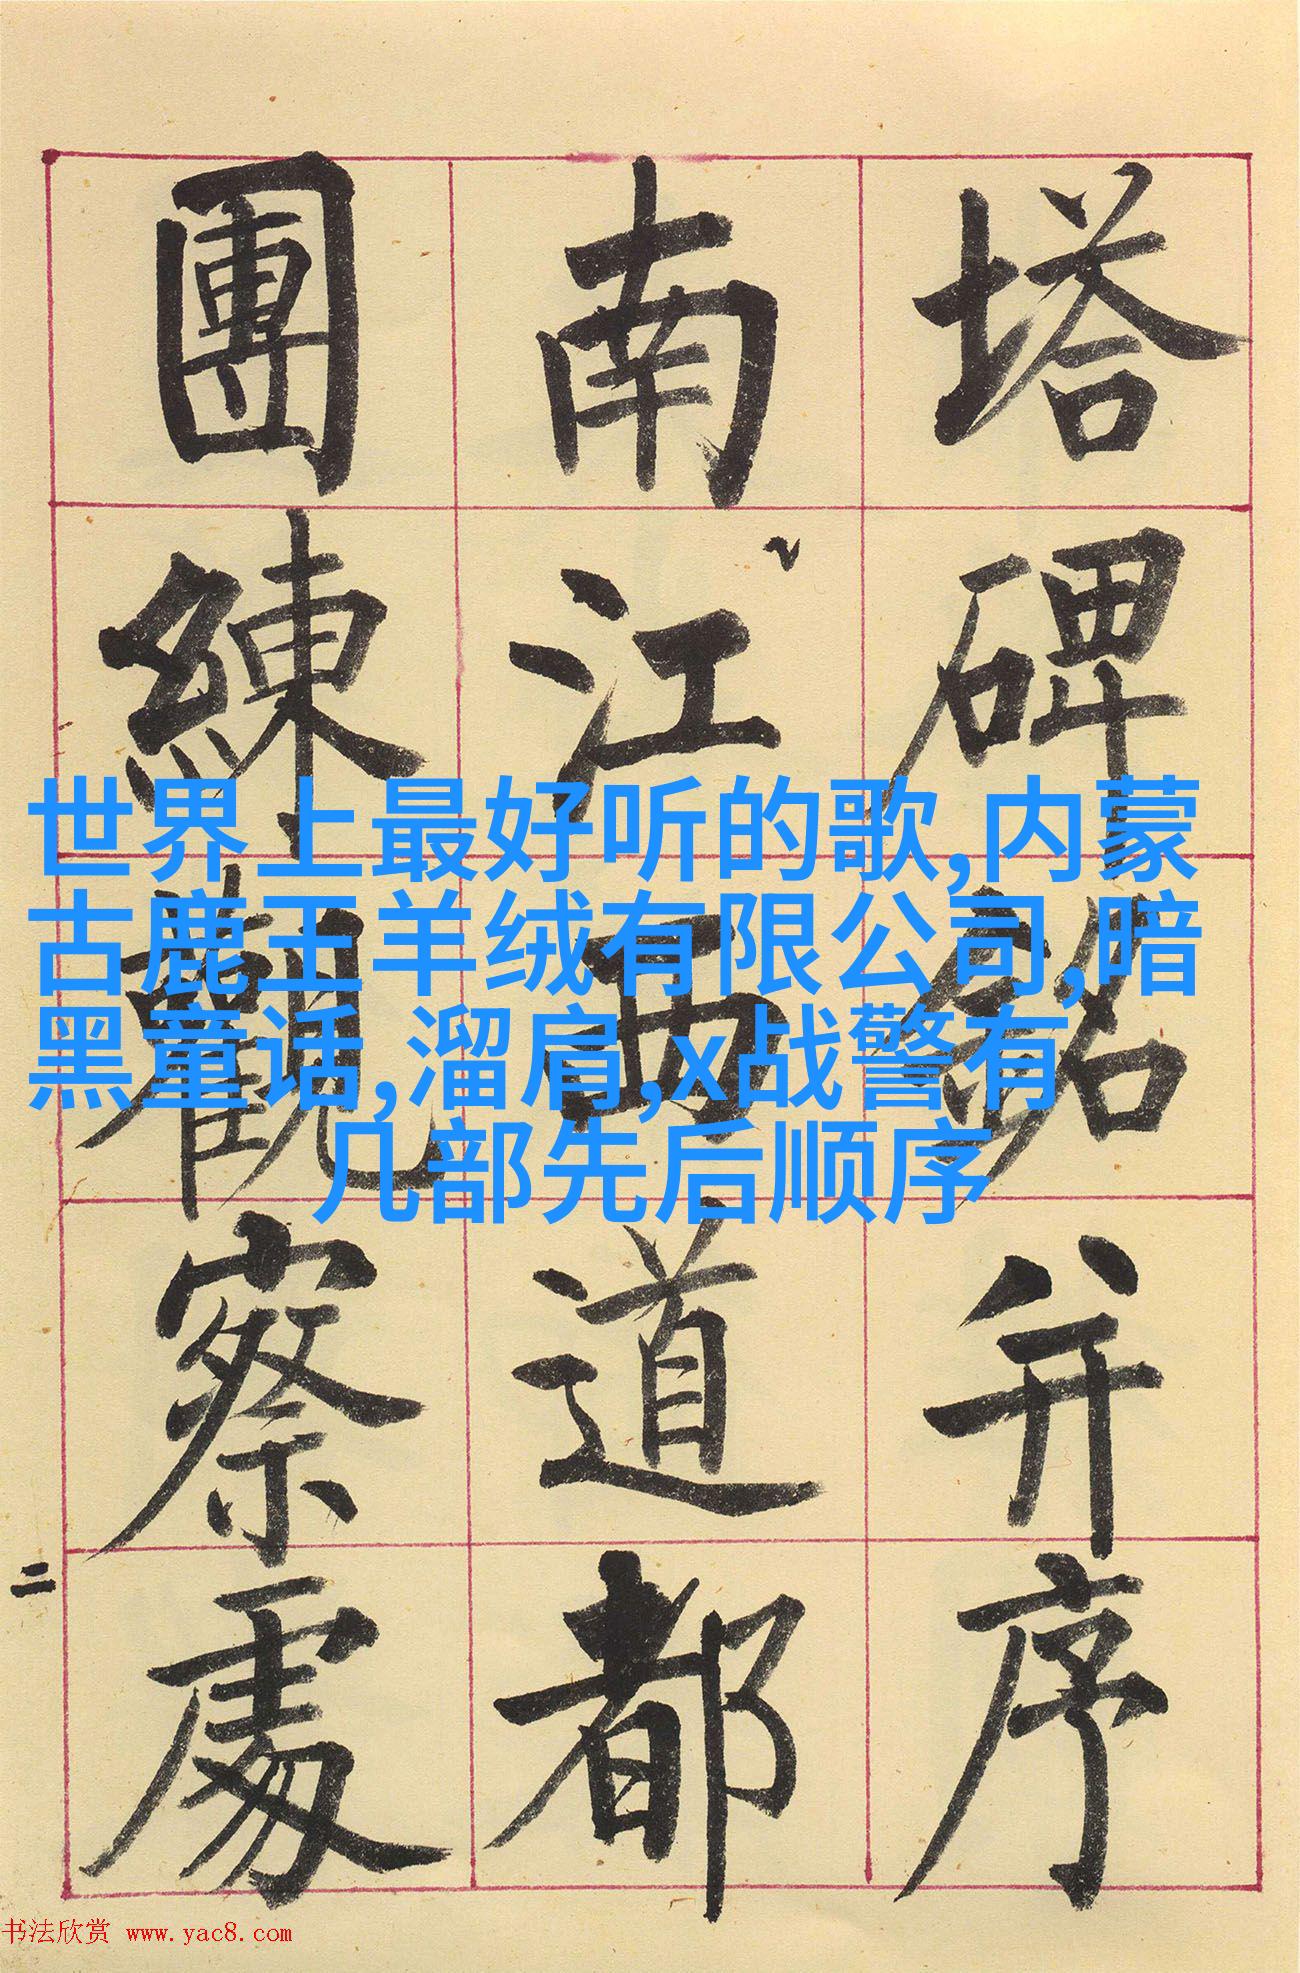 塔碑銘并序
南江西道都
團練觀察處
二
世界上最好听的歌,内蒙
古鹿王羊绒有限公司,暗
黑童话,溜肩,x战警有
几部先后顺序
书法欣赏 www.yac8.com